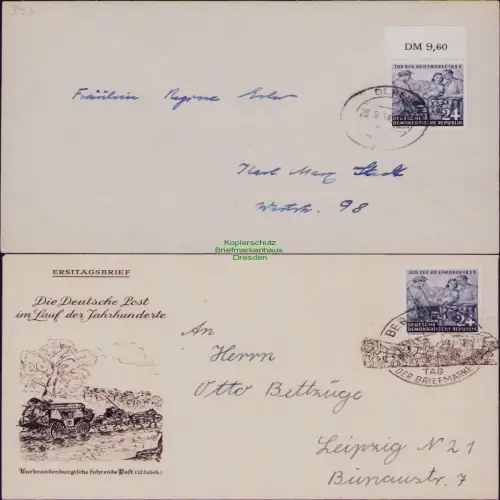 DM 9,60
TAG DER BRIEFMARKE 1953
24
DEUTSCHE
DEMOKRATISCHE REPUBLIK
Fräulein Regine
Karl Marx Stadt
98
Kopierschutz
Briefmarkenhaus
Dresden
ERSTTAGSBRIEF
Die Deutsche Post
im Lauf der Jahrhunderte
Kurbrandenburgische fahrende Post (17. Jahrh.)
TAG DER BRIEFMARKE 1953
24
DEUTSCHE
DEMOKRATISCHE REPUBLIK
TAG
DER BRIEFMARKE
An
Herrn
Otto Bettzüge
Leipzig N 21
Bünaustr. 7